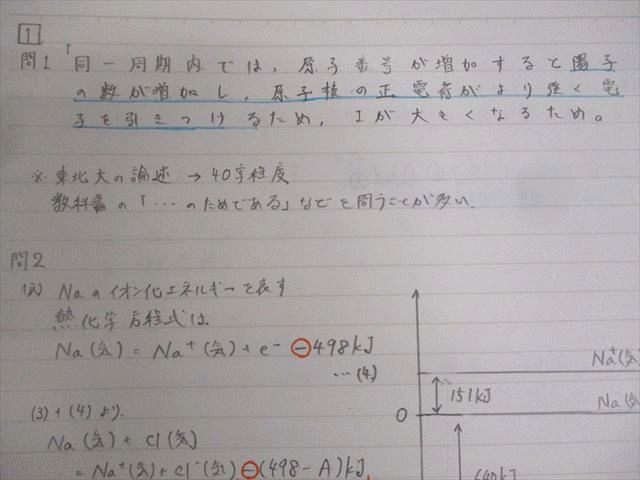 1
問1 「同一周期内では、原子番号が増加すると陽子
の数が増加し、原子核の正電荷がより強く電
子を引きつけるため、Iが大きくなるため。
※東北大の論述 → 40字程度
教科書の「…のためである」などを問うことが多い
問2
(ii) Naのイオン化エネルギーを表す
熱化学方程式は
Na(気) = Na⁺(気) + e⁻ ⊖498kJ
…(4)
(3)+(4)より.
Na(気) + Cl(気)
= Na⁺(気) + Cl⁻(気) ⊖(498-A)kJ
Na⁺(気
151kJ
0
Na(気